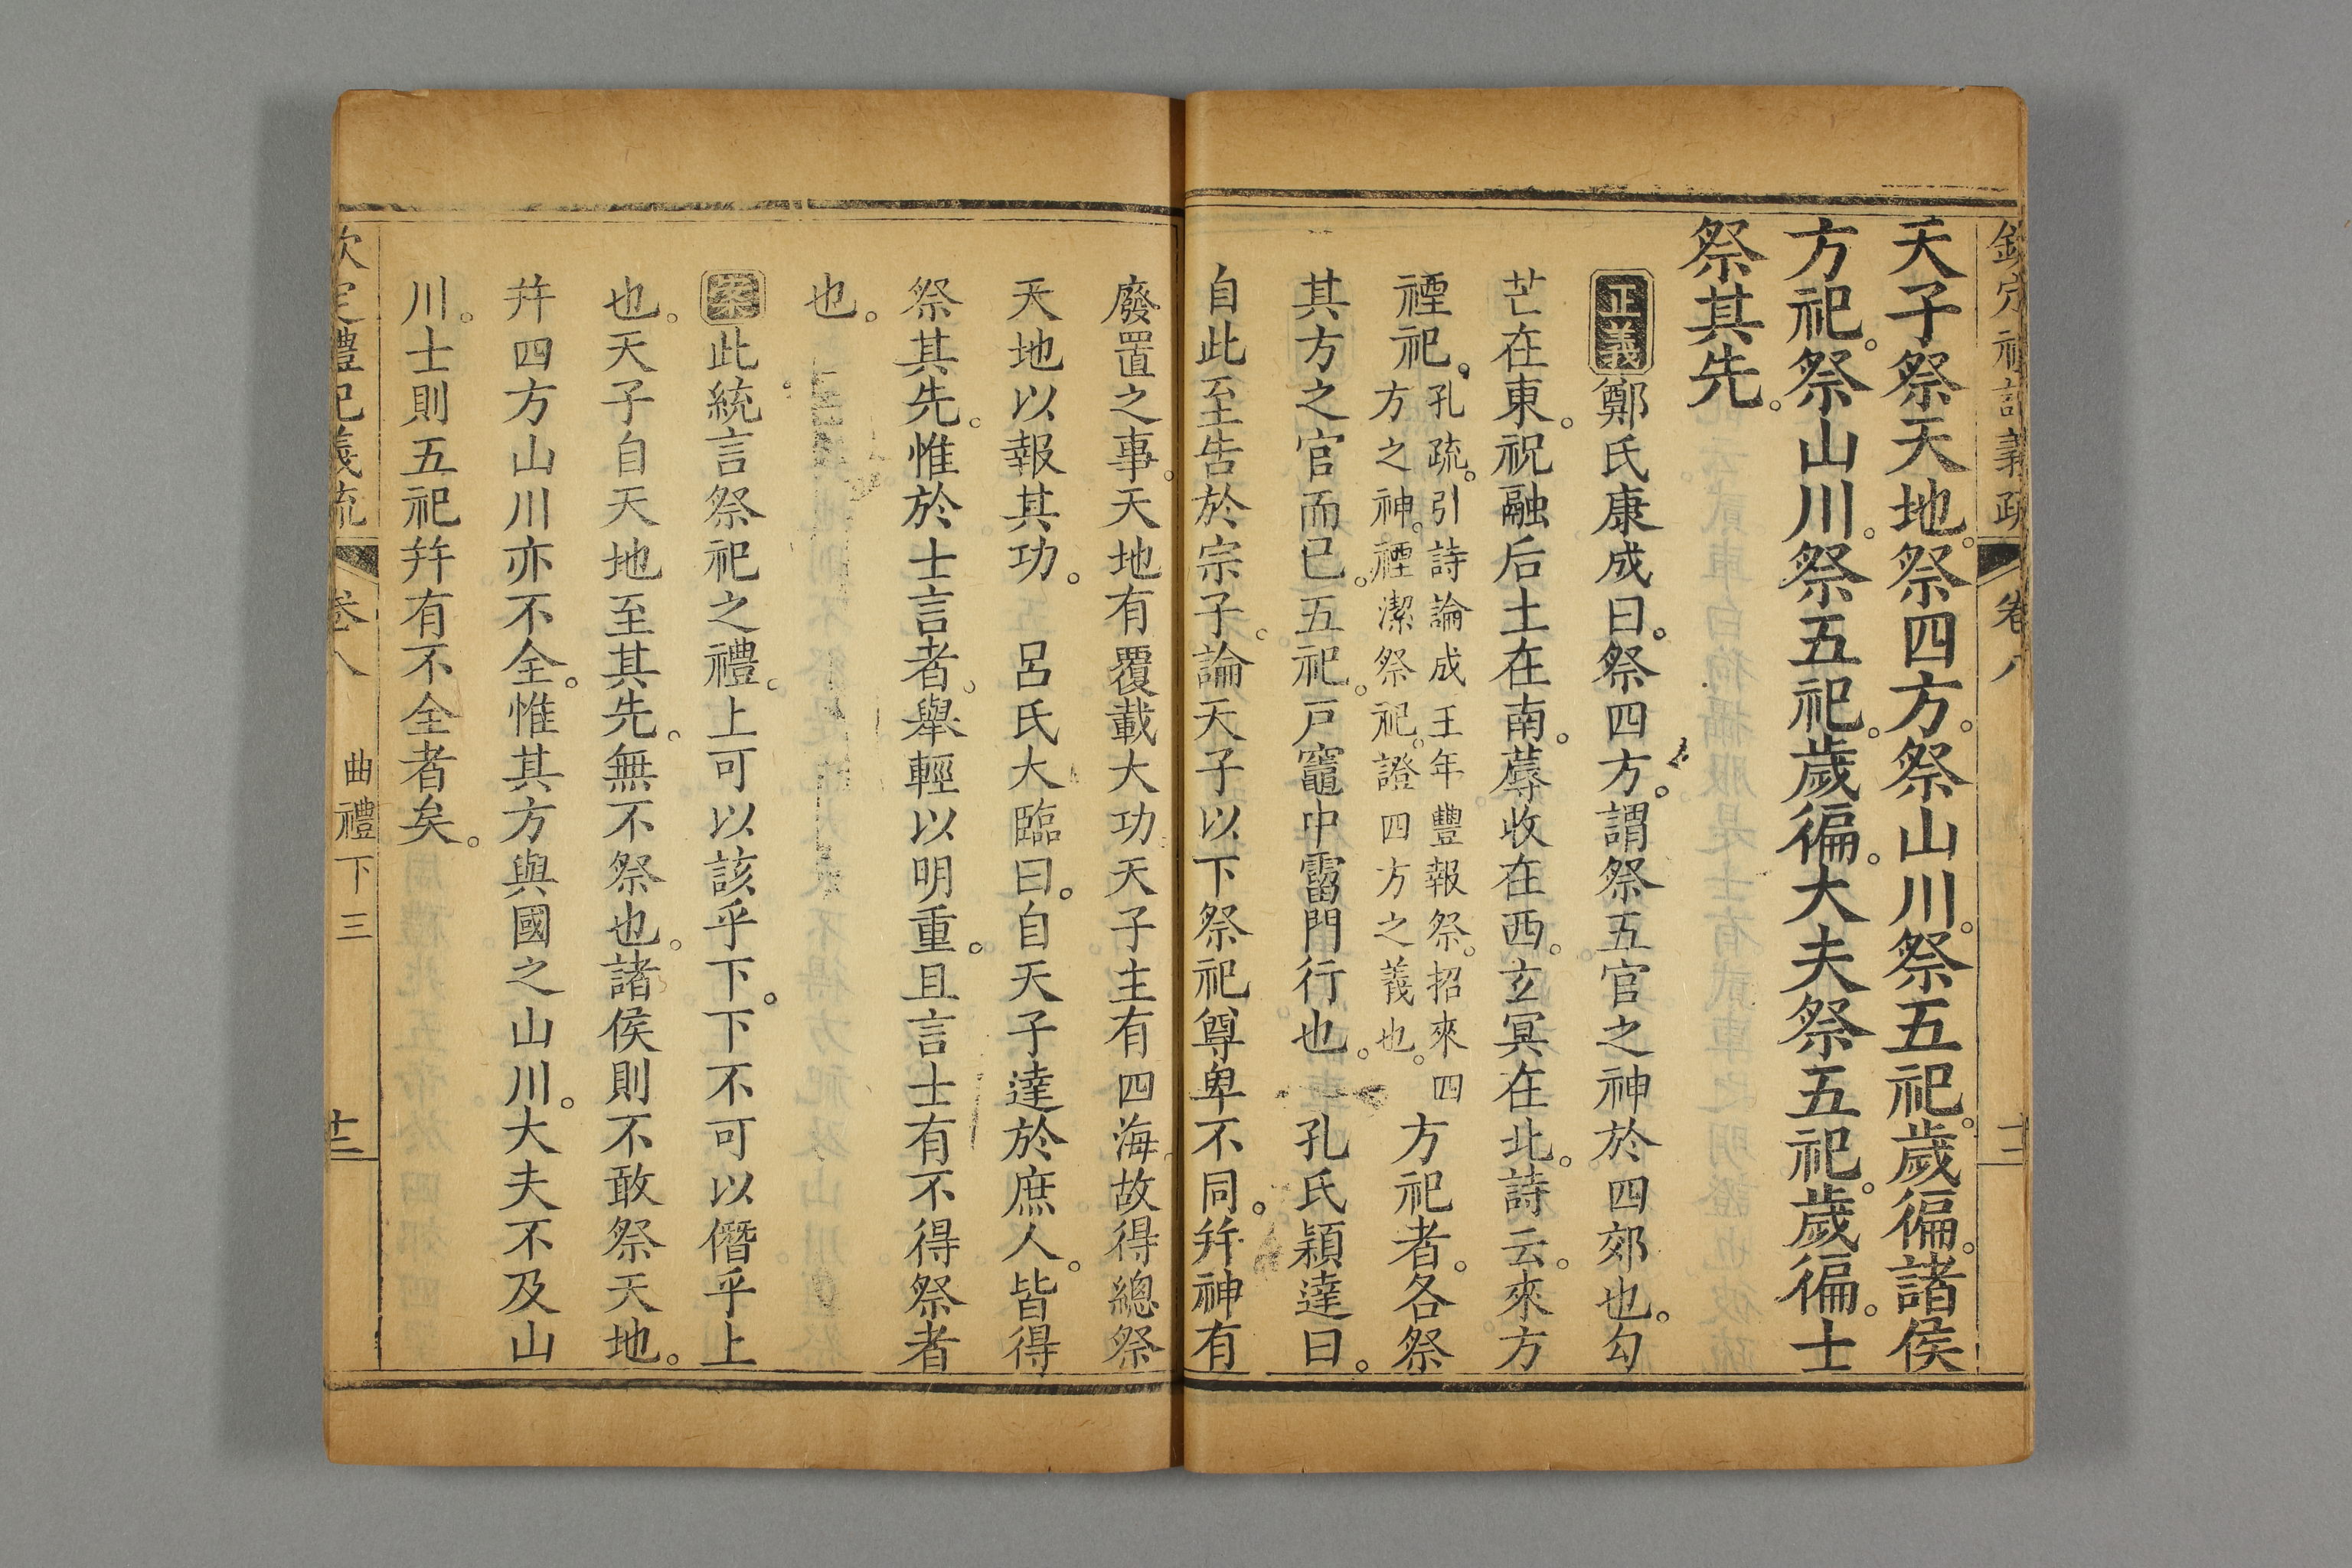 天子祭天地。祭四方。祭山川。祭五祀。歲徧。諸侯
方祀。祭山川。祭五祀。歲徧。大夫祭五祀。歲徧。士
祭其先。
正義鄭氏康成曰。祭四方。謂祭五官之神於四郊也。勾
芒在東。祝融后土在南。蓐收在西。玄冥在北。詩云。來方
禋祀。
孔疏。引詩論成王年豐報祭。招來四
方之神。禋潔祭祀。證四方之義也。
方祀者。各祭
其方之官而已。五祀。戸竈中霤門行也。 孔氏穎達曰。
自此至告於宗子。論天子以下祭祀尊卑不同。幷神有
廢置之事。天地有覆載大功。天子主有四海。故得總祭
天地以報其功。 呂氏大臨曰。自天子達於庶人。皆得
祭其先。惟於士言者。舉輕以明重。且言士有不得祭者
也。
案此統言祭祀之禮。上可以該乎下。下不可以僭乎上
也。天子自天地至其先。無不祭也。諸侯則不敢祭天地。
幷四方山川亦不全。惟其方與國之山川。大夫不及山
川。士則五祀幷有不全者矣。
欽定禮記義疏 卷八 曲禮下三 十三